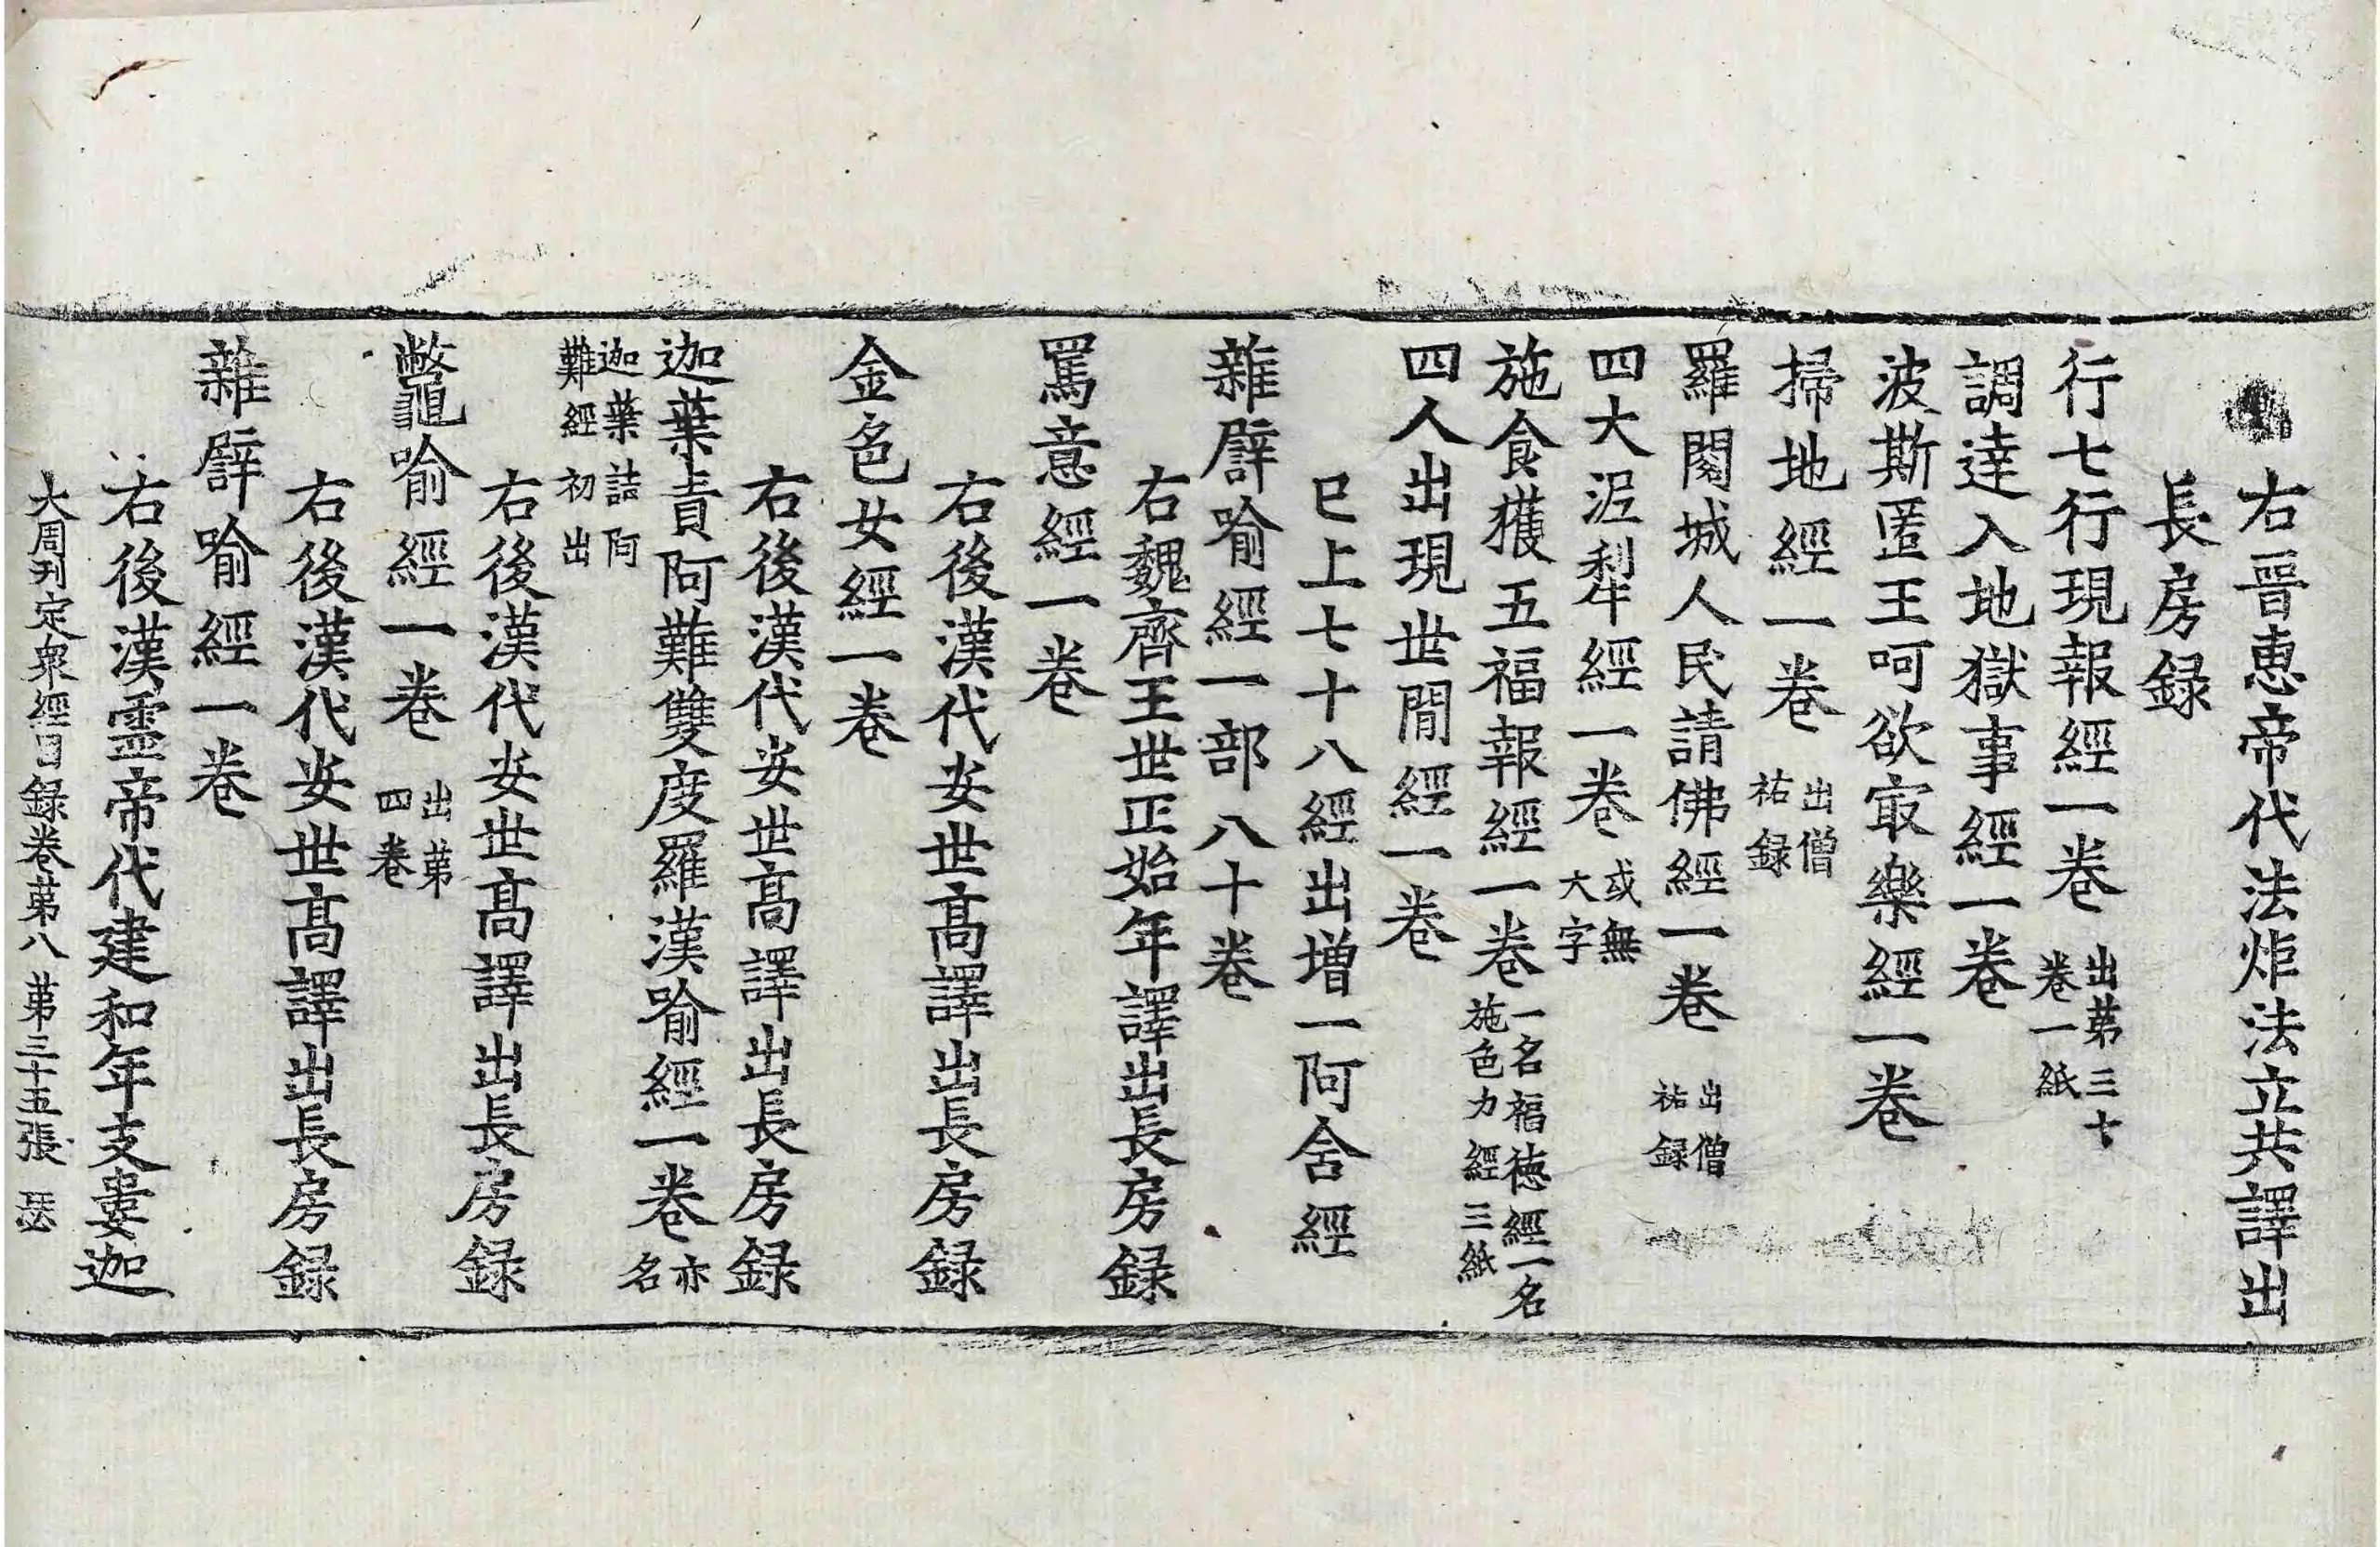 右晉惠帝代法炬法立共譯出
長房録
行七行現報經一卷出苐三十卷一紙
調達入地獄事經一卷
波斯匿王呵欲㝡樂經一卷
掃地經一卷出僧祐録
羅閱城人民請佛經一卷出僧祐録
四大泥犁經一卷或無大字
施食獲五福報經一卷一名福徳經一名施色力經三紙
四人出現世閒經一卷
巳上七十八經出增一阿含經
雜譬喻經一部八十卷
右魏齊王世正始年譯出長房録
罵意經一卷
右後漢代安世髙譯出長房録
金色女經一卷
右後漢代安世髙譯出長房録
迦葉責阿難雙度羅漢喻經一卷亦名
迦葉詰阿難經初出
右後漢代安世髙譯出長房録
鼈喻經一卷出苐四卷
右後漢代安世髙譯出長房録
雜譬喻經一卷
右後漢靈帝代建和年支婁迦
大周刊定衆經目録卷苐八 苐三十五張